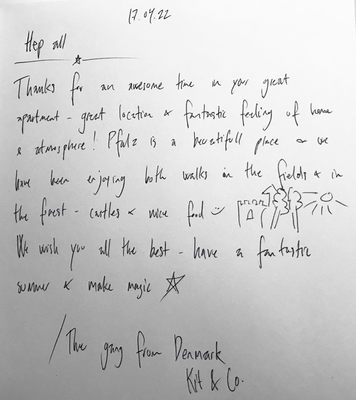 17.04.22
Hep all
Thanks for an awesome time in your great
apartment - great location & fantastic feeling of home
& atmosphere! Pfalz is a beautifull place & we
have been enjoying both walks in the fields & in
the forest - castles & nice food
We wish you all the best - have a fantastic
summer & make magic
/The gang from Denmark
Kit & Co.